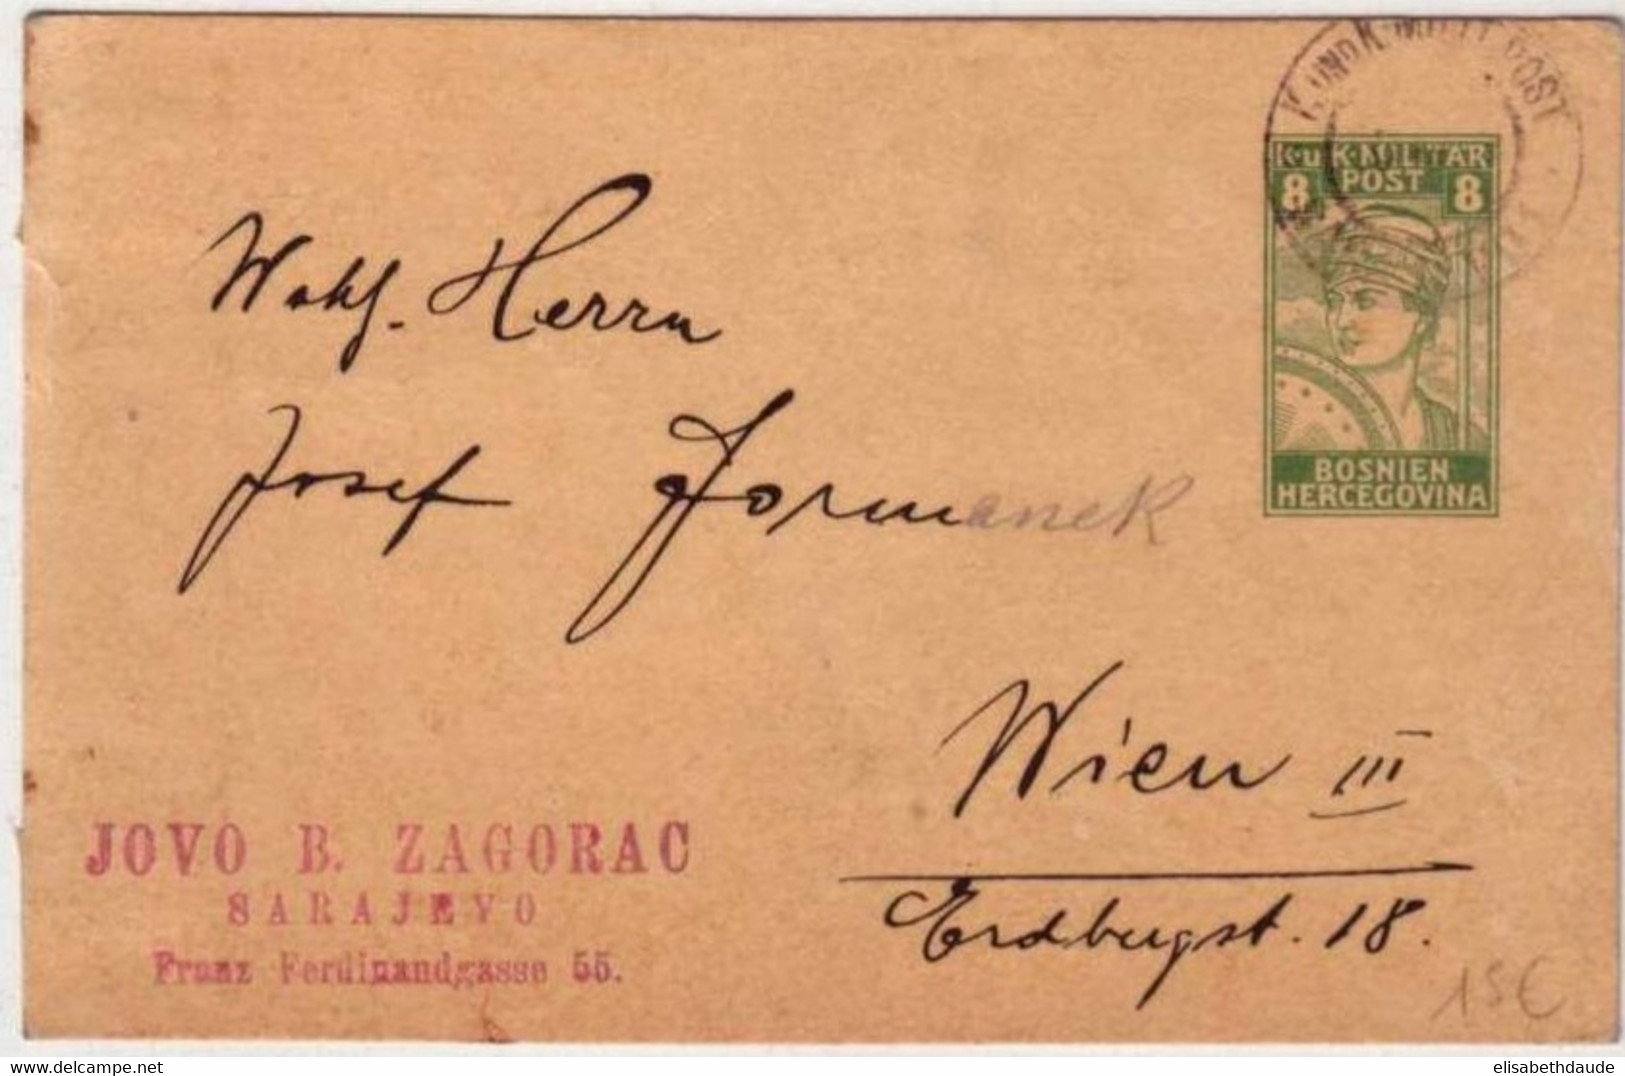 K. UND K. MILIT. POST
K.u.K.MILITÄR
8 POST 8
BOSNIEN
HERCEGOVINA
Wohl. Herrn
Josef Formanek
Wien III
Erdbergst. 18.
JOVO B. ZAGORAC
SARAJEVO
Franz Ferdinandgasse 55.
15€
delcampe.net
elisabethdaude